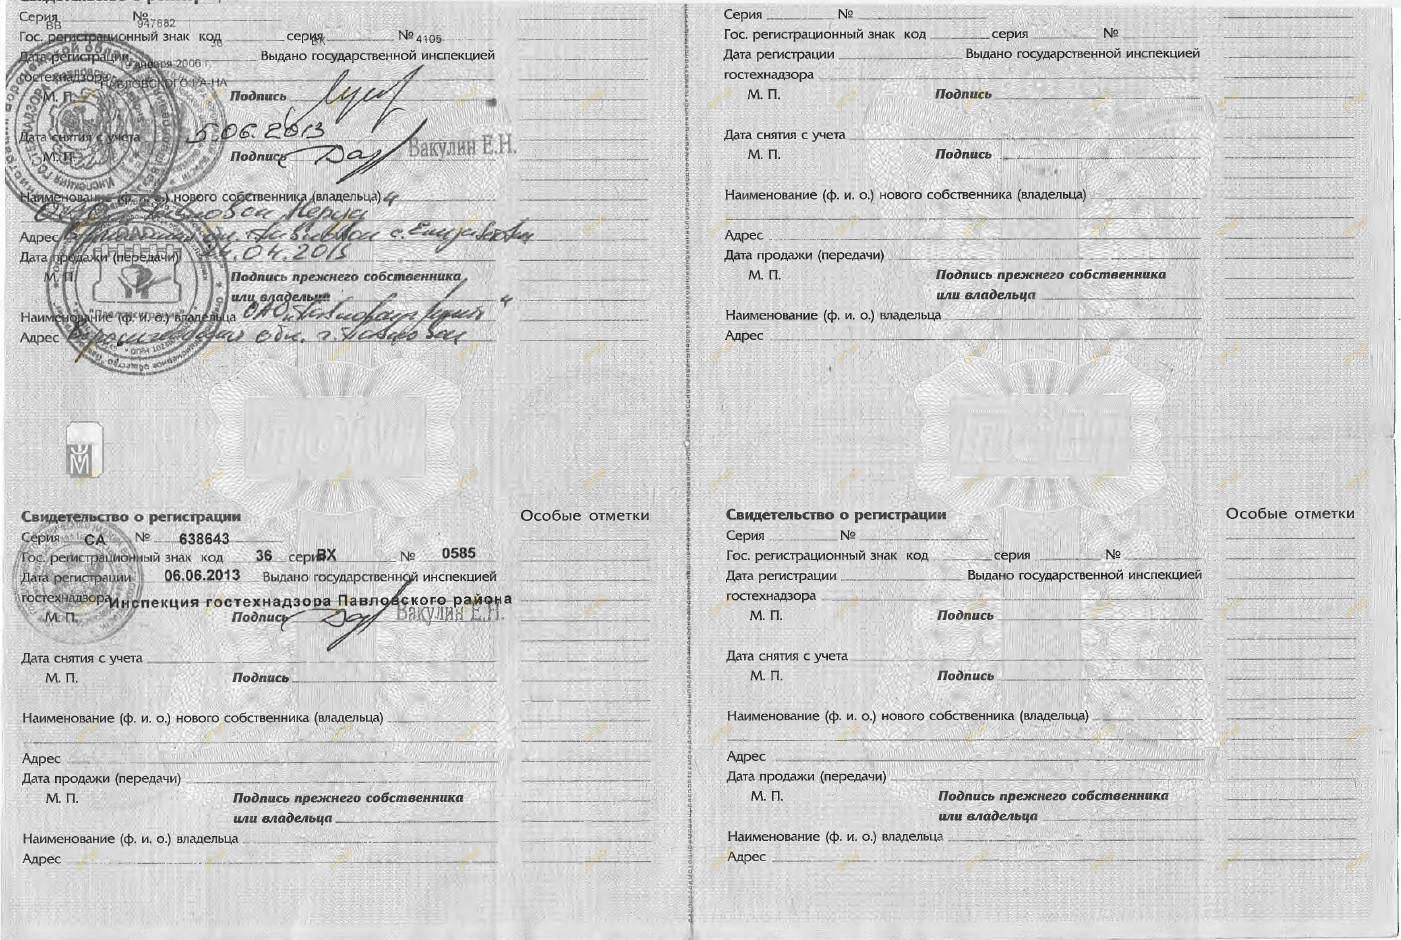 Свидетельство о регистрации
Серия ВВ № 947882
Гос. регистрационный знак код 36 серия ВК № 4105
Дата регистрации января 2006 г. Выдано государственной инспекцией
гостехнадзора ПАВЛОВСКОГО Р-НА
М. П. Подпись
Дата снятия с учета 5.06.2013
М. П. Подпись Вакулин Е.Н.
Наименование (ф. и. о.) нового собственника (владельца)
Адрес с.
Дата продажи (передачи) .04.2013
М. П. Подпись прежнего собственника
или владельца
Наименование (ф. и. о.) владельца ОАО
Адрес Воронежская обл. г. Павловск
Свидетельство о регистрации Особые отметки
Серия СА № 638643
Гос. регистрационный знак код 36 серия ВХ № 0585
Дата регистрации 06.06.2013 Выдано государственной инспекцией
гостехнадзора Инспекция гостехнадзора Павловского района
М. П. Подпись Вакулин Е.Н.
Дата снятия с учета
М. П. Подпись
Наименование (ф. и. о.) нового собственника (владельца)
Адрес
Дата продажи (передачи)
М. П. Подпись прежнего собственника
или владельца
Наименование (ф. и. о.) владельца
Адрес
Серия №
Гос. регистрационный знак код серия №
Дата регистрации Выдано государственной инспекцией
гостехнадзора
М. П. Подпись
Дата снятия с учета
М. П. Подпись
Наименование (ф. и. о.) нового собственника (владельца)
Адрес
Дата продажи (передачи)
М. П. Подпись прежнего собственника
или владельца
Наименование (ф. и. о.) владельца
Адрес
Свидетельство о регистрации Особые отметки
Серия №
Гос. регистрационный знак код серия №
Дата регистрации Выдано государственной инспекцией
гостехнадзора
М. П. Подпись
Дата снятия с учета
М. П. Подпись
Наименование (ф. и. о.) нового собственника (владельца)
Адрес
Дата продажи (передачи)
М. П. Подпись прежнего собственника
или владельца
Наименование (ф. и. о.) владельца
Адрес